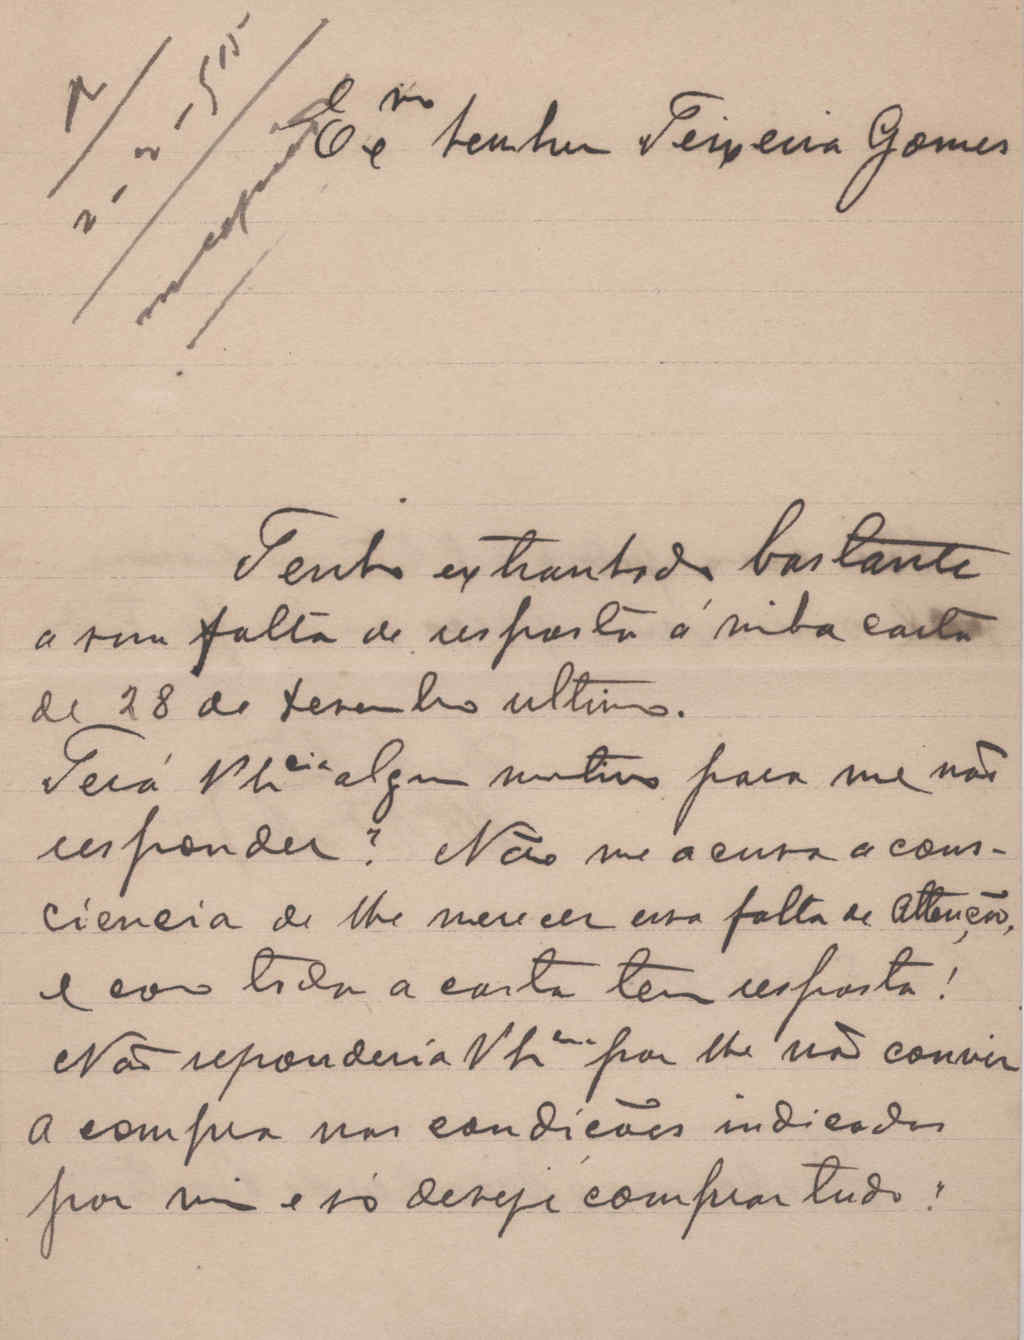 R
2-2-915
Exmo Senhor Teixeira Gomes
Tenho extranhado bastante
a sua falta de resposta á minha carta
de 28 de dezembro ultimo.
Terá V Excia algum motivo para me não
responder? Não me acusa a cons-
ciencia de lhe merecer essa falta de attenção,
e como toda a carta tem resposta!
Não reponderia V Excia por lhe não convir
a compra nas condições indicadas
por mim e só deseje comprar tudo?